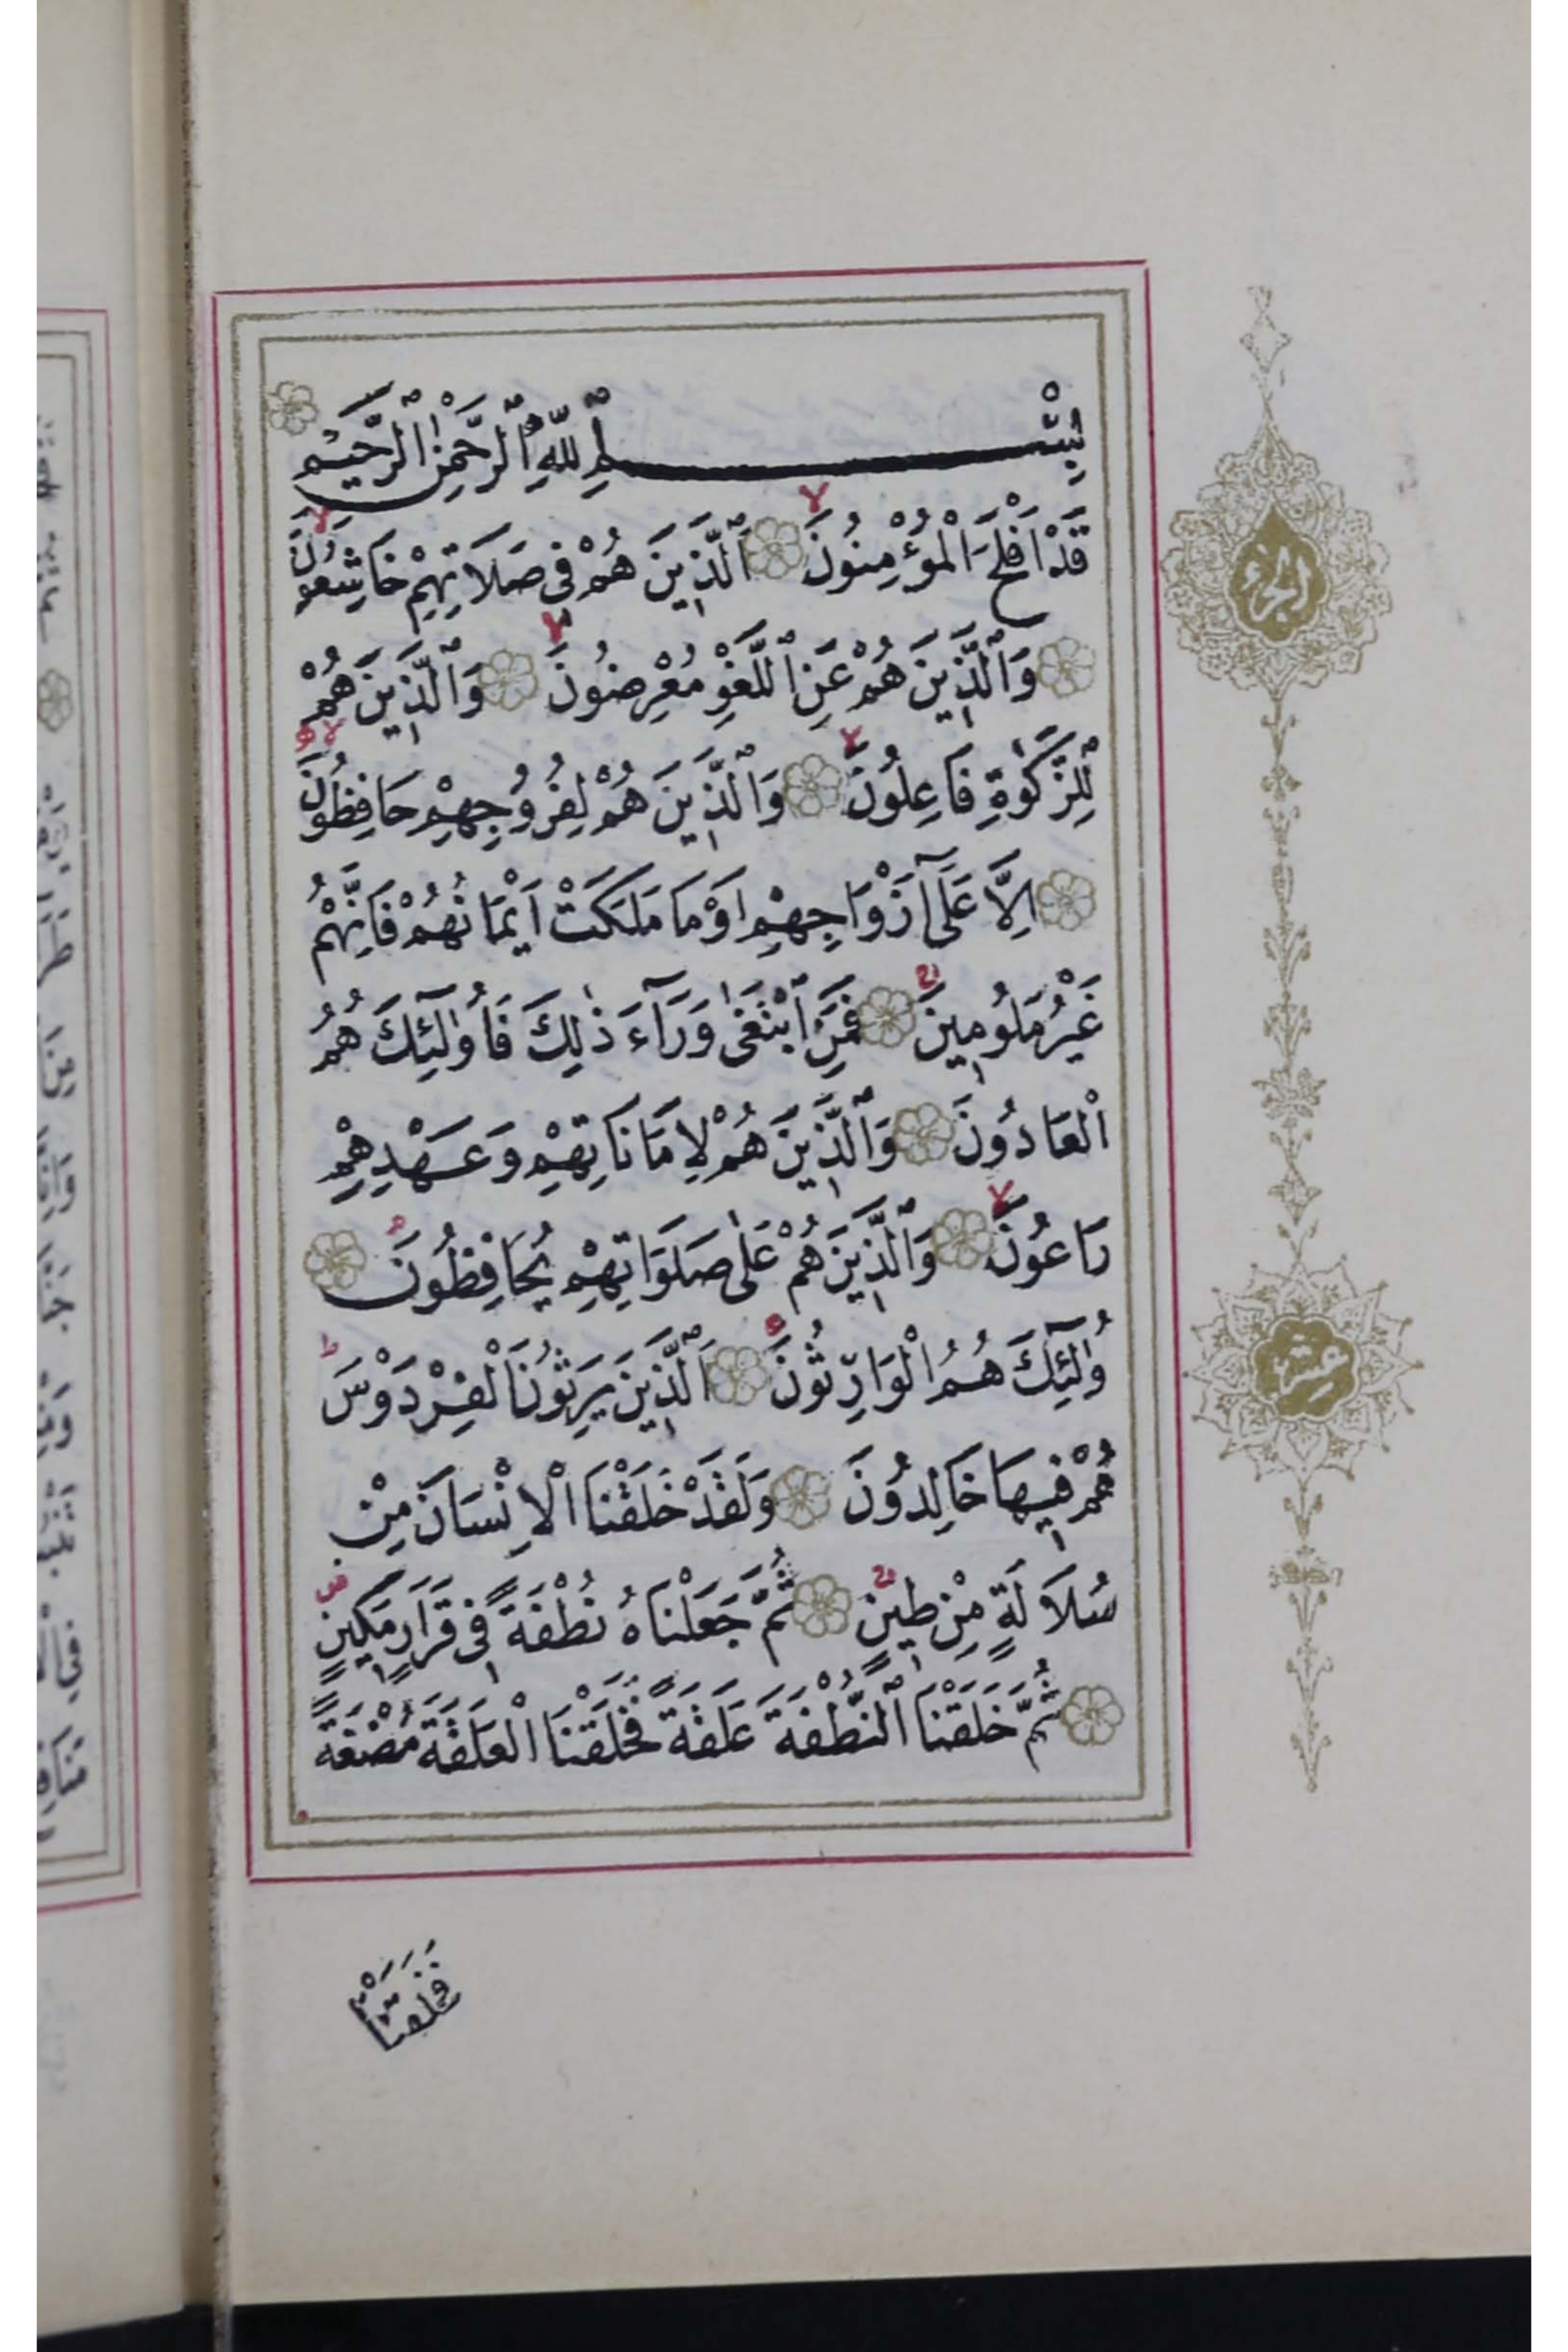 بِسْــــــمِ ٱللّٰهِ ٱلرَّحْمٰنِ ٱلرَّحِيمِ
قَدْ اَفْلَحَ الْمُؤْمِنُونَ ۙ اَلَّذِينَ هُمْ فِى صَلَاتِهِمْ خَاشِعُونَ ۙ
وَالَّذِينَ هُمْ عَنِ اللَّغْوِ مُعْرِضُونَ ۙ وَالَّذِينَ هُمْ
لِلزَّكٰوةِ فَاعِلُونَ ۙ وَالَّذِينَ هُمْ لِفُرُوجِهِمْ حَافِظُونَ ۙ
اِلَّا عَلَٓى اَزْوَاجِهِمْ اَوْ مَا مَلَكَتْ اَيْمَانُهُمْ فَاِنَّهُمْ
غَيْرُ مَلُومِينَ فَمَنِ ابْتَغٰى وَرَآءَ ذٰلِكَ فَاُولٰٓئِكَ هُمُ
الْعَادُونَ وَالَّذِينَ هُمْ لِاَمَانَاتِهِمْ وَعَهْدِهِمْ
رَاعُونَ ۙ وَالَّذِينَ هُمْ عَلٰى صَلَوَاتِهِمْ يُحَافِظُونَ
اُولٰٓئِكَ هُمُ الْوَارِثُونَ اَلَّذِينَ يَرِثُونَ الْفِرْدَوْسَ ط
هُمْ فِيهَا خَالِدُونَ وَلَقَدْ خَلَقْنَا الْاِنْسَانَ مِنْ
سُلَالَةٍ مِنْ طِينٍ ثُمَّ جَعَلْنَاهُ نُطْفَةً فِى قَرَارٍ مَكِينٍ
ثُمَّ خَلَقْنَا النُّطْفَةَ عَلَقَةً فَخَلَقْنَا الْعَلَقَةَ مُضْغَةً
فَخَلَقْنَا
الجزء
عشر